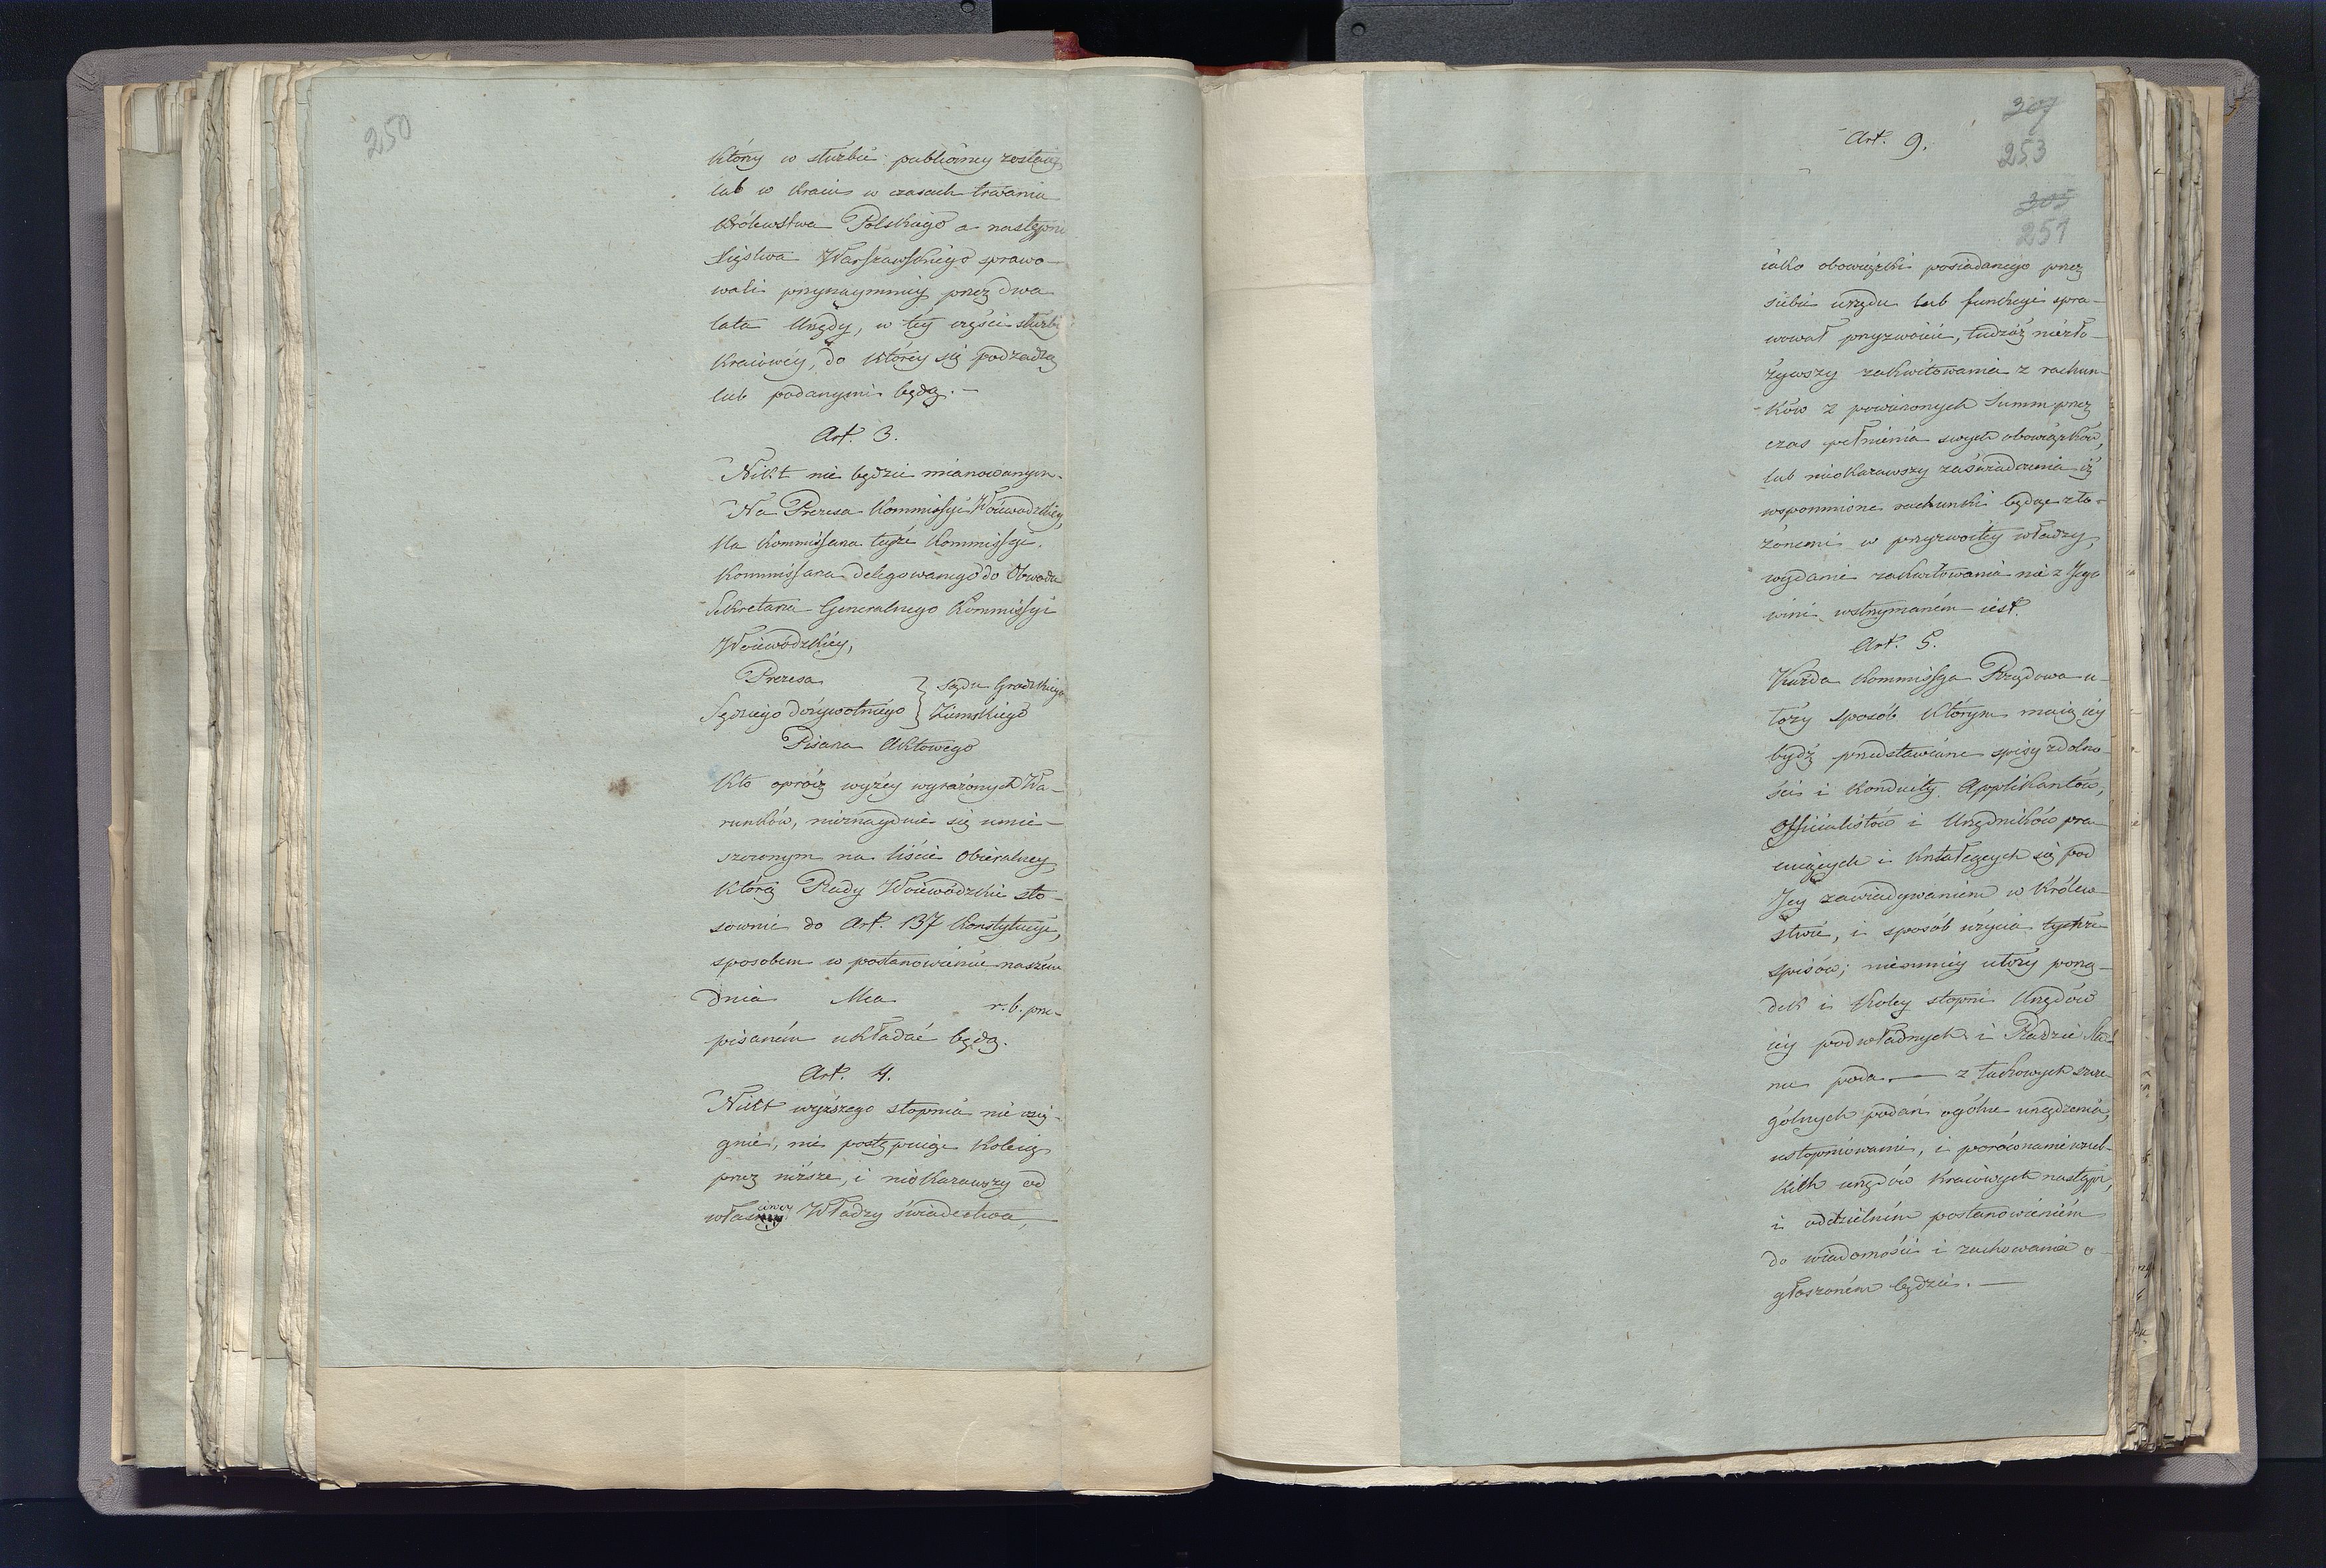 250
który w służbie publiczney zostaią
lub w kraiu w czasach trwania
Królewstwa Polskiego a następnie
Xięstwa Warszawskiego sprawo-
wali przynaymniey przez dwa
lata Urzędy, w téy części służby
kraiowéy, do któréy się podzadzą
lub podanymi będą. —
Art. 3.
Nikt nie będzie mianowanym
Na Prezesa Kommissyi Woiewodzkiéy,
Na Kommissarza teyże Kommissyi.
Kommissarza delegowanego do Obwodu
Sekretarza Generalnego Kommissyi
Woiewódzkiéy,
Prezesa } Sądu Grodzkiego
Sędziego dożywotniego } Ziemskiego
Pisarza Aktowego
Kto oprócz wyżéy wyrażonych Wa-
runków, nieznaydzie się umie-
szczonym na liście Obieralney,
którą Rady Woiewódzkie sto-
sownie do Art. 137 Konstytucyi,
sposobem w postanowieniu naszém
dnia Mca r. b. prze-
pisaném układać będą.
Art. 4.
Nikt wyższego stopnia nie osią-
gnie, nie postępuiąc koleią
przez niższe, i nieokazawszy od
właściwey Władzy świadectwa,
Art. 9.
307
253
305
251
iako obowiązki posiadanego przez
siebie urzędu lub funkcyi spra-
wował przyzwoicie, tudzież niezło-
żywszy zakwitowania z rachun-
ków z powierzonych Summ przez
czas pełnienia swych obowiązków,
lub nieokazawszy zaświadczenia iż
wspomnione rachunki będąc zło-
żonemi w przyzwoitéy władzy,
wydanie zakwitowania nie z Jego
winy wstrzymaném iest.
Art. 5.
Każda Kommissya Rządowa u-
łoży sposób którym maią iéy
bydź przedstawiane spisy zdolno-
ści i konduity Applikantów,
Officialistów i Urzędników pra-
cuiących i kształcących się pod
Jéy zawiadywaniem w Królew-
stwie, i sposób użycia tychże
spisów; niemniéy ułoży porzą-
dek i koley stopni Urzędów
iéy podwładnych i Radzie Sta-
nu poda. — z takowych szcze-
gólnych podań ogólne urządzenie,
ustopniowanie, i porównanie wszel-
kich urzędów kraiowych nastąpi,
i oddzielném postanowieniem
do wiadomości i zachowania o-
głoszoném będzie. —